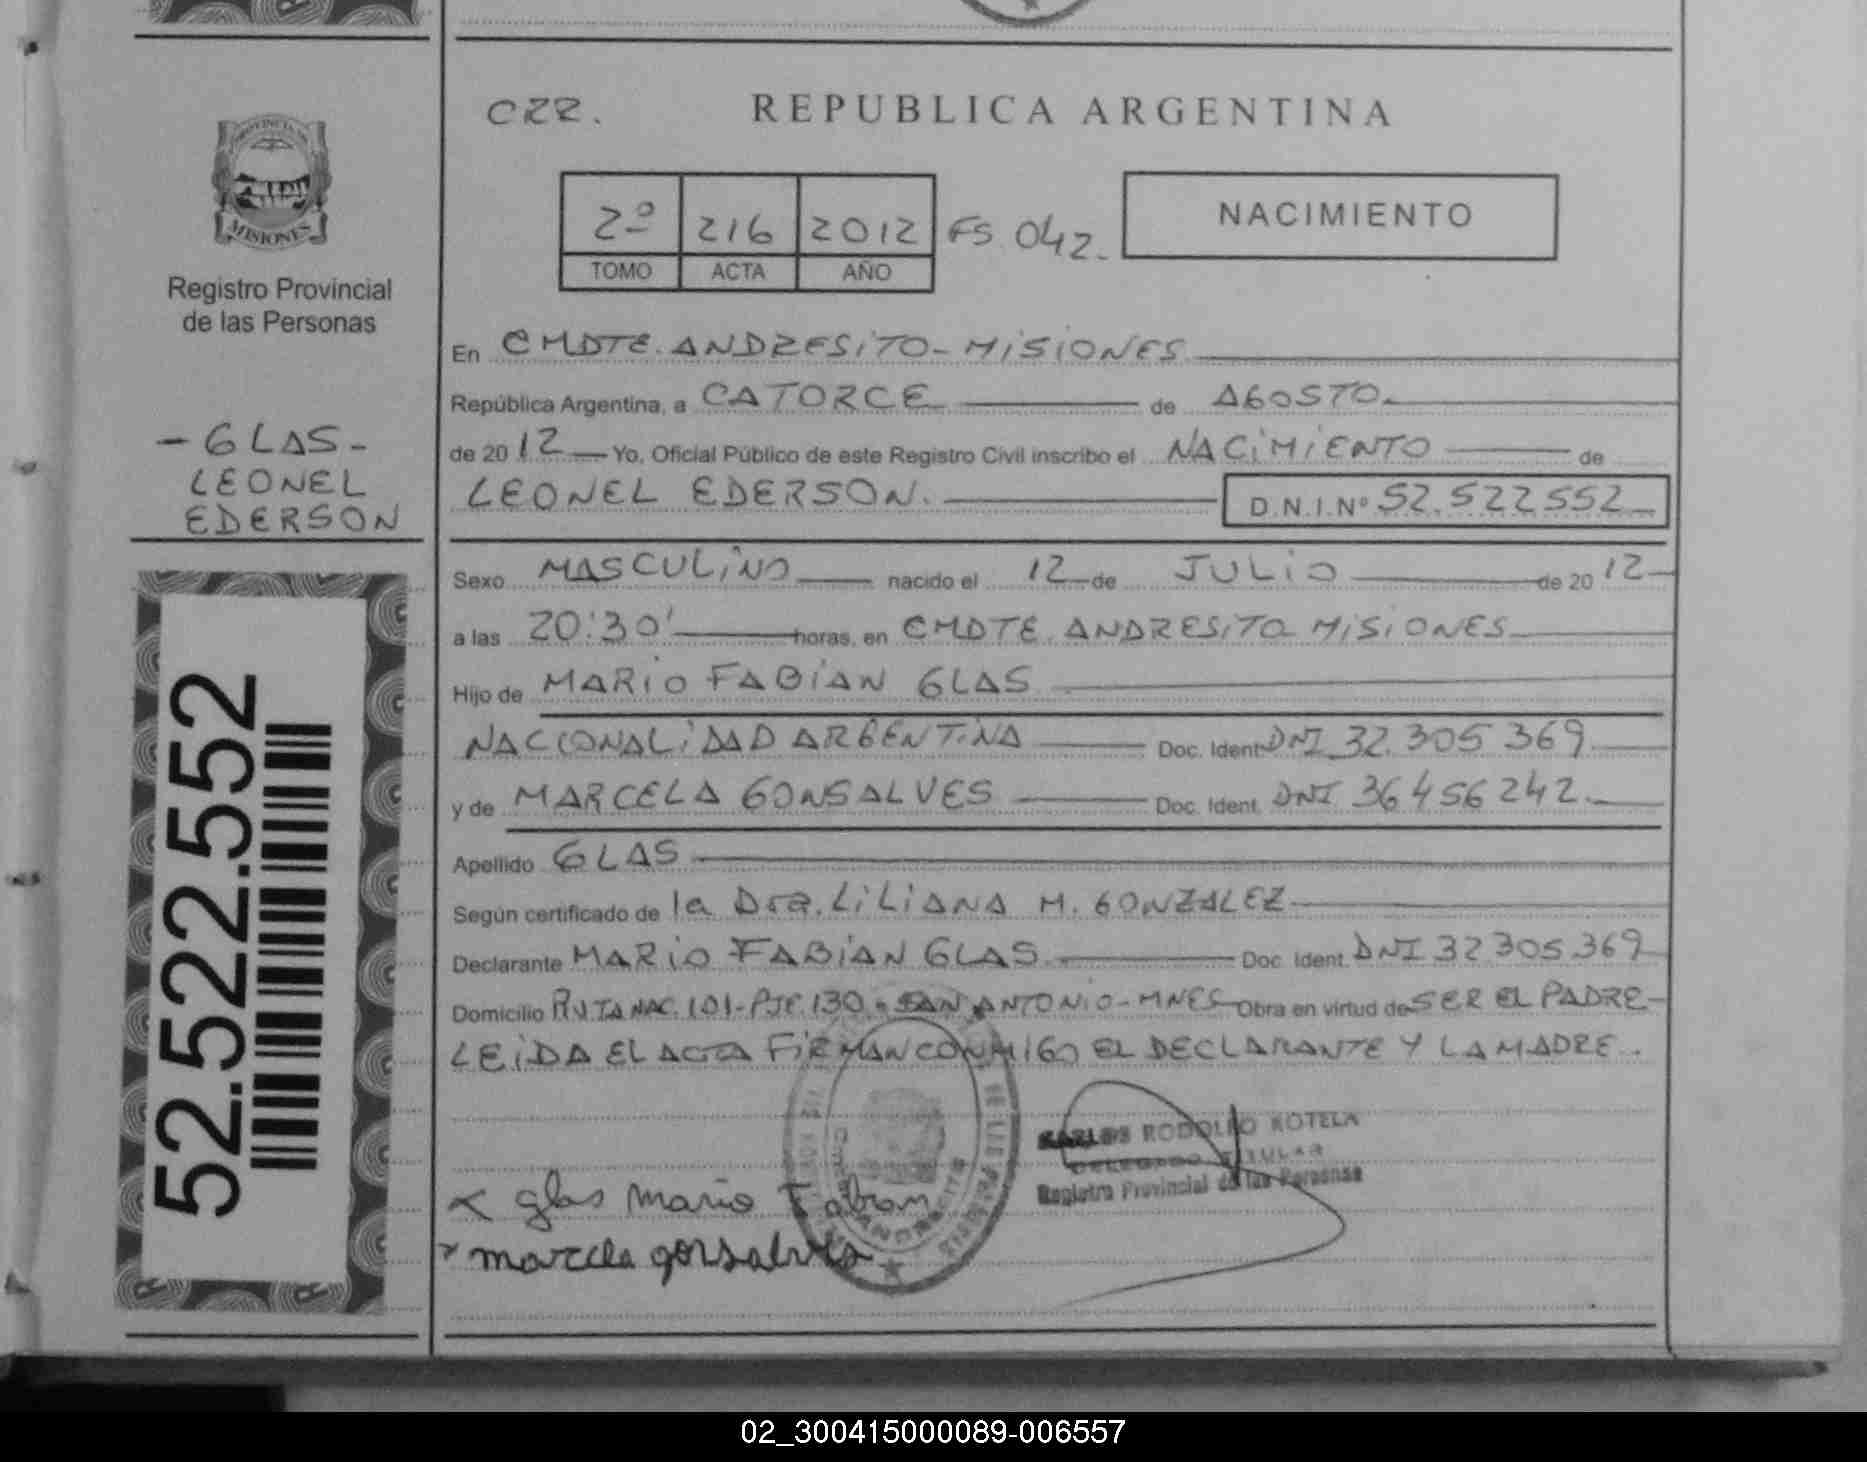 PROVINCIA DE
MISIONES
Registro Provincial
de las Personas
- GLAS -
LEONEL
EDERSON
52.522.552
CRR.
REPUBLICA ARGENTINA
2º 216 2012 FS 042.
TOMO ACTA AÑO
NACIMIENTO
En CMDTE. ANDRESITO - MISIONES
República Argentina, a CATORCE de AGOSTO.
de 2012 Yo, Oficial Público de este Registro Civil inscribo el NACIMIENTO de
LEONEL EDERSON. D.N.I.Nº 52.522552
Sexo MASCULINO nacido el 12 de JULIO de 2012
a las 20:30' horas, en CMDTE. ANDRESITO MISIONES
Hijo de MARIO FABIAN GLAS
NACIONALIDAD ARGENTINA Doc. Ident. DNI 32.305 369
y de MARCELA GONSALVES Doc. Ident. DNI 36456242.
Apellido GLAS
Según certificado de la Dra. LILIANA M. GONZALEZ
Declarante MARIO FABIAN GLAS Doc. Ident. DNI 32305369
Domicilio RUTA NAC. 101-PJE.130 - SAN ANTONIO - MNES Obra en virtud de SER EL PADRE -
LEIDA EL ACTA FIRMAN CONMIGO EL DECLARANTE Y LA MADRE.
CARLOS RODOLFO KOTELA
DELEGADO TITULAR
Registro Provincial de las Personas
x glas mario Fabian
x marcela gonsalves
ANDRESITO
02_300415000089-006557